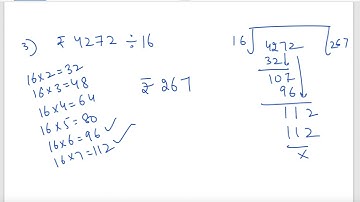 3) ₹ 4272 ÷ 16
16×2=32
16×3=48
16×4=64
16×5=80
16×6=96 ✓
16×7=112 ✓
₹ 267
16 4272 267
32↓
107
96↓
112
112
x